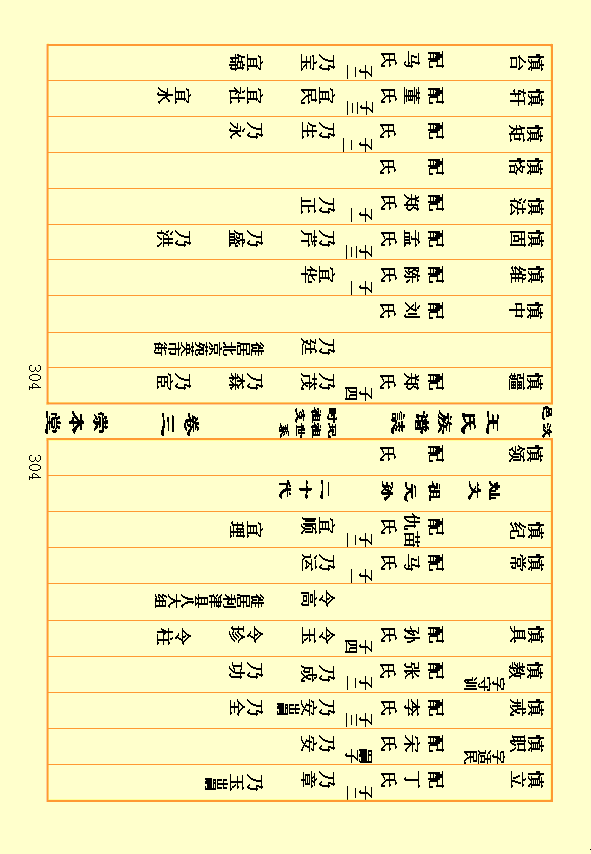 慎立 配丁氏 子二 乃章 乃玉出嗣
慎职 字活民 配宋氏 嗣子 乃安
慎戒 配李氏 子二 乃安出嗣 乃全
慎教 字守训 配张氏 子二 乃成 乃功
慎具 配孙氏 子四 令玉 令珍 令柱
令高 徙居利津县八大组
慎常 配马氏 子一 乃运
慎纪 配仇苗氏 子二 宜顺 宜理
灿文祖元孙 二十代
慎领 配 氏
304
汶邑 王氏族谱誌 卷三 崇本堂
慎疆 配郑氏 子四 乃茂 乃森 乃官
乃廷 徙居北京施英市街
慎中 配刘氏
慎维 配陈氏 子一 宜华
慎固 配孟氏 子三 乃芹 乃盛 乃洪
慎法 配郑氏 子一 乃正
慎恪 配 氏
慎矩 配 氏 子二 乃生 乃永
慎轩 配董氏 子三 宜民 宜社 宜水
慎台 配马氏 子二 乃宝 宜锦
304